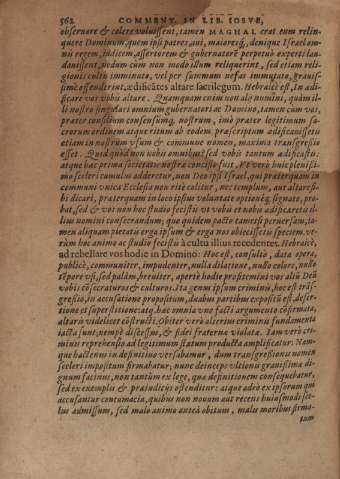 562 COMMENT. IN LIB. IOSVÆ,
obseruare & colere voluissent, tamen MAGHAL erat eum relin-
quere Dominum, quem ipsi patres, aut, maioresq́, denique Israel om-
nis regem, iudicem, assertorem & gubernatorẽ perpetuò experti lau-
dauissent, nedum cùm non modò illum reliquerint, sed etiam reli-
gionis cultu imminuto, vel per summum nefas immutato, grauis-
simè offenderint, ædificãtes altare sacrilegum. Hebraicè est, In ædi-
ficare vos vobis altare. Quamquam enim non alij numini, quàm il-
li nostro singulari omnium gubernatori ac Domino, tamen cùm vos,
præter consilium consensumq́, nostrum, imò præter legitimum sa-
crorum ordinem atque ritum ab eodem præscriptum ædificauissetis
etiam in nostrum vsum & commune nomen, maxima transgressio
esset. Quid quòd non nobis omnibus, sed vobis tantum ædificastis,
atque hac prima sceleritate nostra concilio fuit, Et verò huic plenissi-
mo sceleri cumulus adderetur, non Deo ipsi Israel, qui præterquam in
communi vnica Ecclesia non ritè colitur, nec templum, aut altare si-
bi dicari, præterquam in loco ipsius voluntate optioneq́, signato, pro-
bat, sed & vos non hoc studio fecistis vt vobis et nobis ædificaretis il-
lius numini consecrandum: quo quidem pacto tametsi peruersam, ta-
men aliquam pietatis erga ipsum & erga nos obiecissetis speciem. ve-
rùm hoc animo ac studio fecistis à cultu illius recedentes. Hebraicè,
ad rebellare vos hodie in Domino: Hoc est, consultò, data opera,
publicè, communiter, impudenter, nulla dilatione, nullo colore, nullo
tẽpore vsi, sed palàm, breuiter, apertè hodie profitemini vos alij Deũ
vobis cõsecraturos & culturos. Ita genus ipsum criminis, hoc est trãs-
gressio, in accusatione propositum, duabus partibus expositũ est, deser-
tione et superstitione: atq. hæc omnia vno facti argumento cõfirmata,
altaris videlicet cõstructi. Obiter verò alterius criminis fundamenta
iacta sunt, nempè discessus, & fidei fraternæ violata. Iam verò cri-
minis reprehensio ad legitimum statum producta amplificatur. Nam-
que hactenus in definitiuo versabamur, dum transgressionis nomen
sceleri impositum firmabatur; nunc deinceps vltionis grauissima di-
gnum facinus, non tantùm ex lege, qua definitionem consequebatur,
sed ex exemplis & præiudicijs ostenditur: atque adeò ex ipsorum qui
accusantur contumacia, quibus non nouum aut recens huiusmodi sce-
lus admissum, sed malo animo anteà obitum, malis moribus firma-
tum